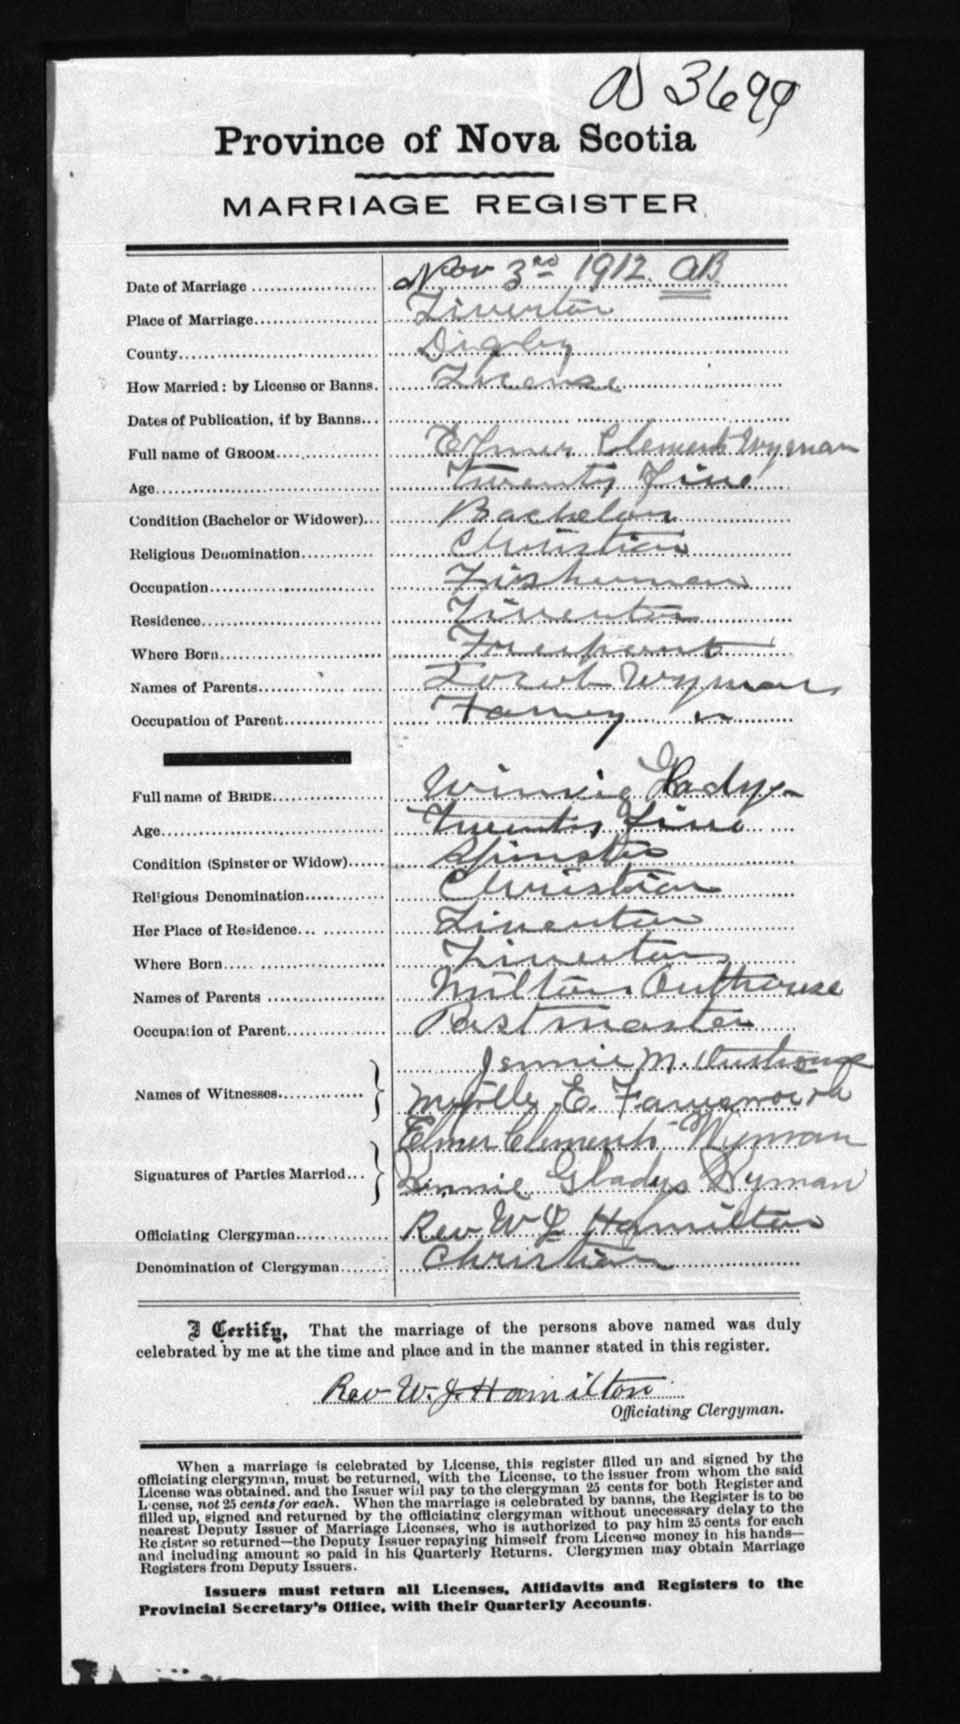 A 3699
Province of Nova Scotia
MARRIAGE REGISTER
Date of Marriage Nov 3rd 1912 AB
Place of Marriage Tiverton
County Digby
How Married: by License or Banns. License
Dates of Publication, if by Banns
Full name of GROOM Elmer Clements Wyman
Age Twenty Five
Condition (Bachelor or Widower) Bachelor
Religious Denomination Christian
Occupation Fisherman
Residence Tiverton
Where Born Freeport
Names of Parents Jacob Wyman
Occupation of Parent Fanny "
Full name of BRIDE Winnie Gladys
Age Twenty Five
Condition (Spinster or Widow) Spinster
Religious Denomination Christian
Her Place of Residence Tiverton
Where Born Tiverton
Names of Parents Milton Outhouse
Occupation of Parent Postmaster
Jennie M. Outhouse
Names of Witnesses E. Farnsworth
Elmer Clements Wyman
Signatures of Parties Married Winnie Gladys Wyman
Officiating Clergyman Rev W J Hamilton
Denomination of Clergyman Christian
I Certify, That the marriage of the persons above named was duly
celebrated by me at the time and place and in the manner stated in this register.
Rev W. J. Hamilton
Officiating Clergyman.
When a marriage is celebrated by License, this register filled up and signed by the
officiating clergyman, must be returned, with the License, to the issuer from whom the said
License was obtained, and the Issuer will pay to the clergyman 25 cents for both Register and
License, not 25 cents for each. When the marriage is celebrated by banns, the Register is to be
filled up, signed and returned by the officiating clergyman without unecessary delay to the
nearest Deputy Issuer of Marriage Licenses, who is authorized to pay him 25 cents for each
Register so returned—the Deputy Issuer repaying himself from License money in his hands—
and including amount so paid in his Quarterly Returns. Clergymen may obtain Marriage
Registers from Deputy Issuers.
Issuers must return all Licenses, Affidavits and Registers to the
Provincial Secretary's Office, with their Quarterly Accounts.